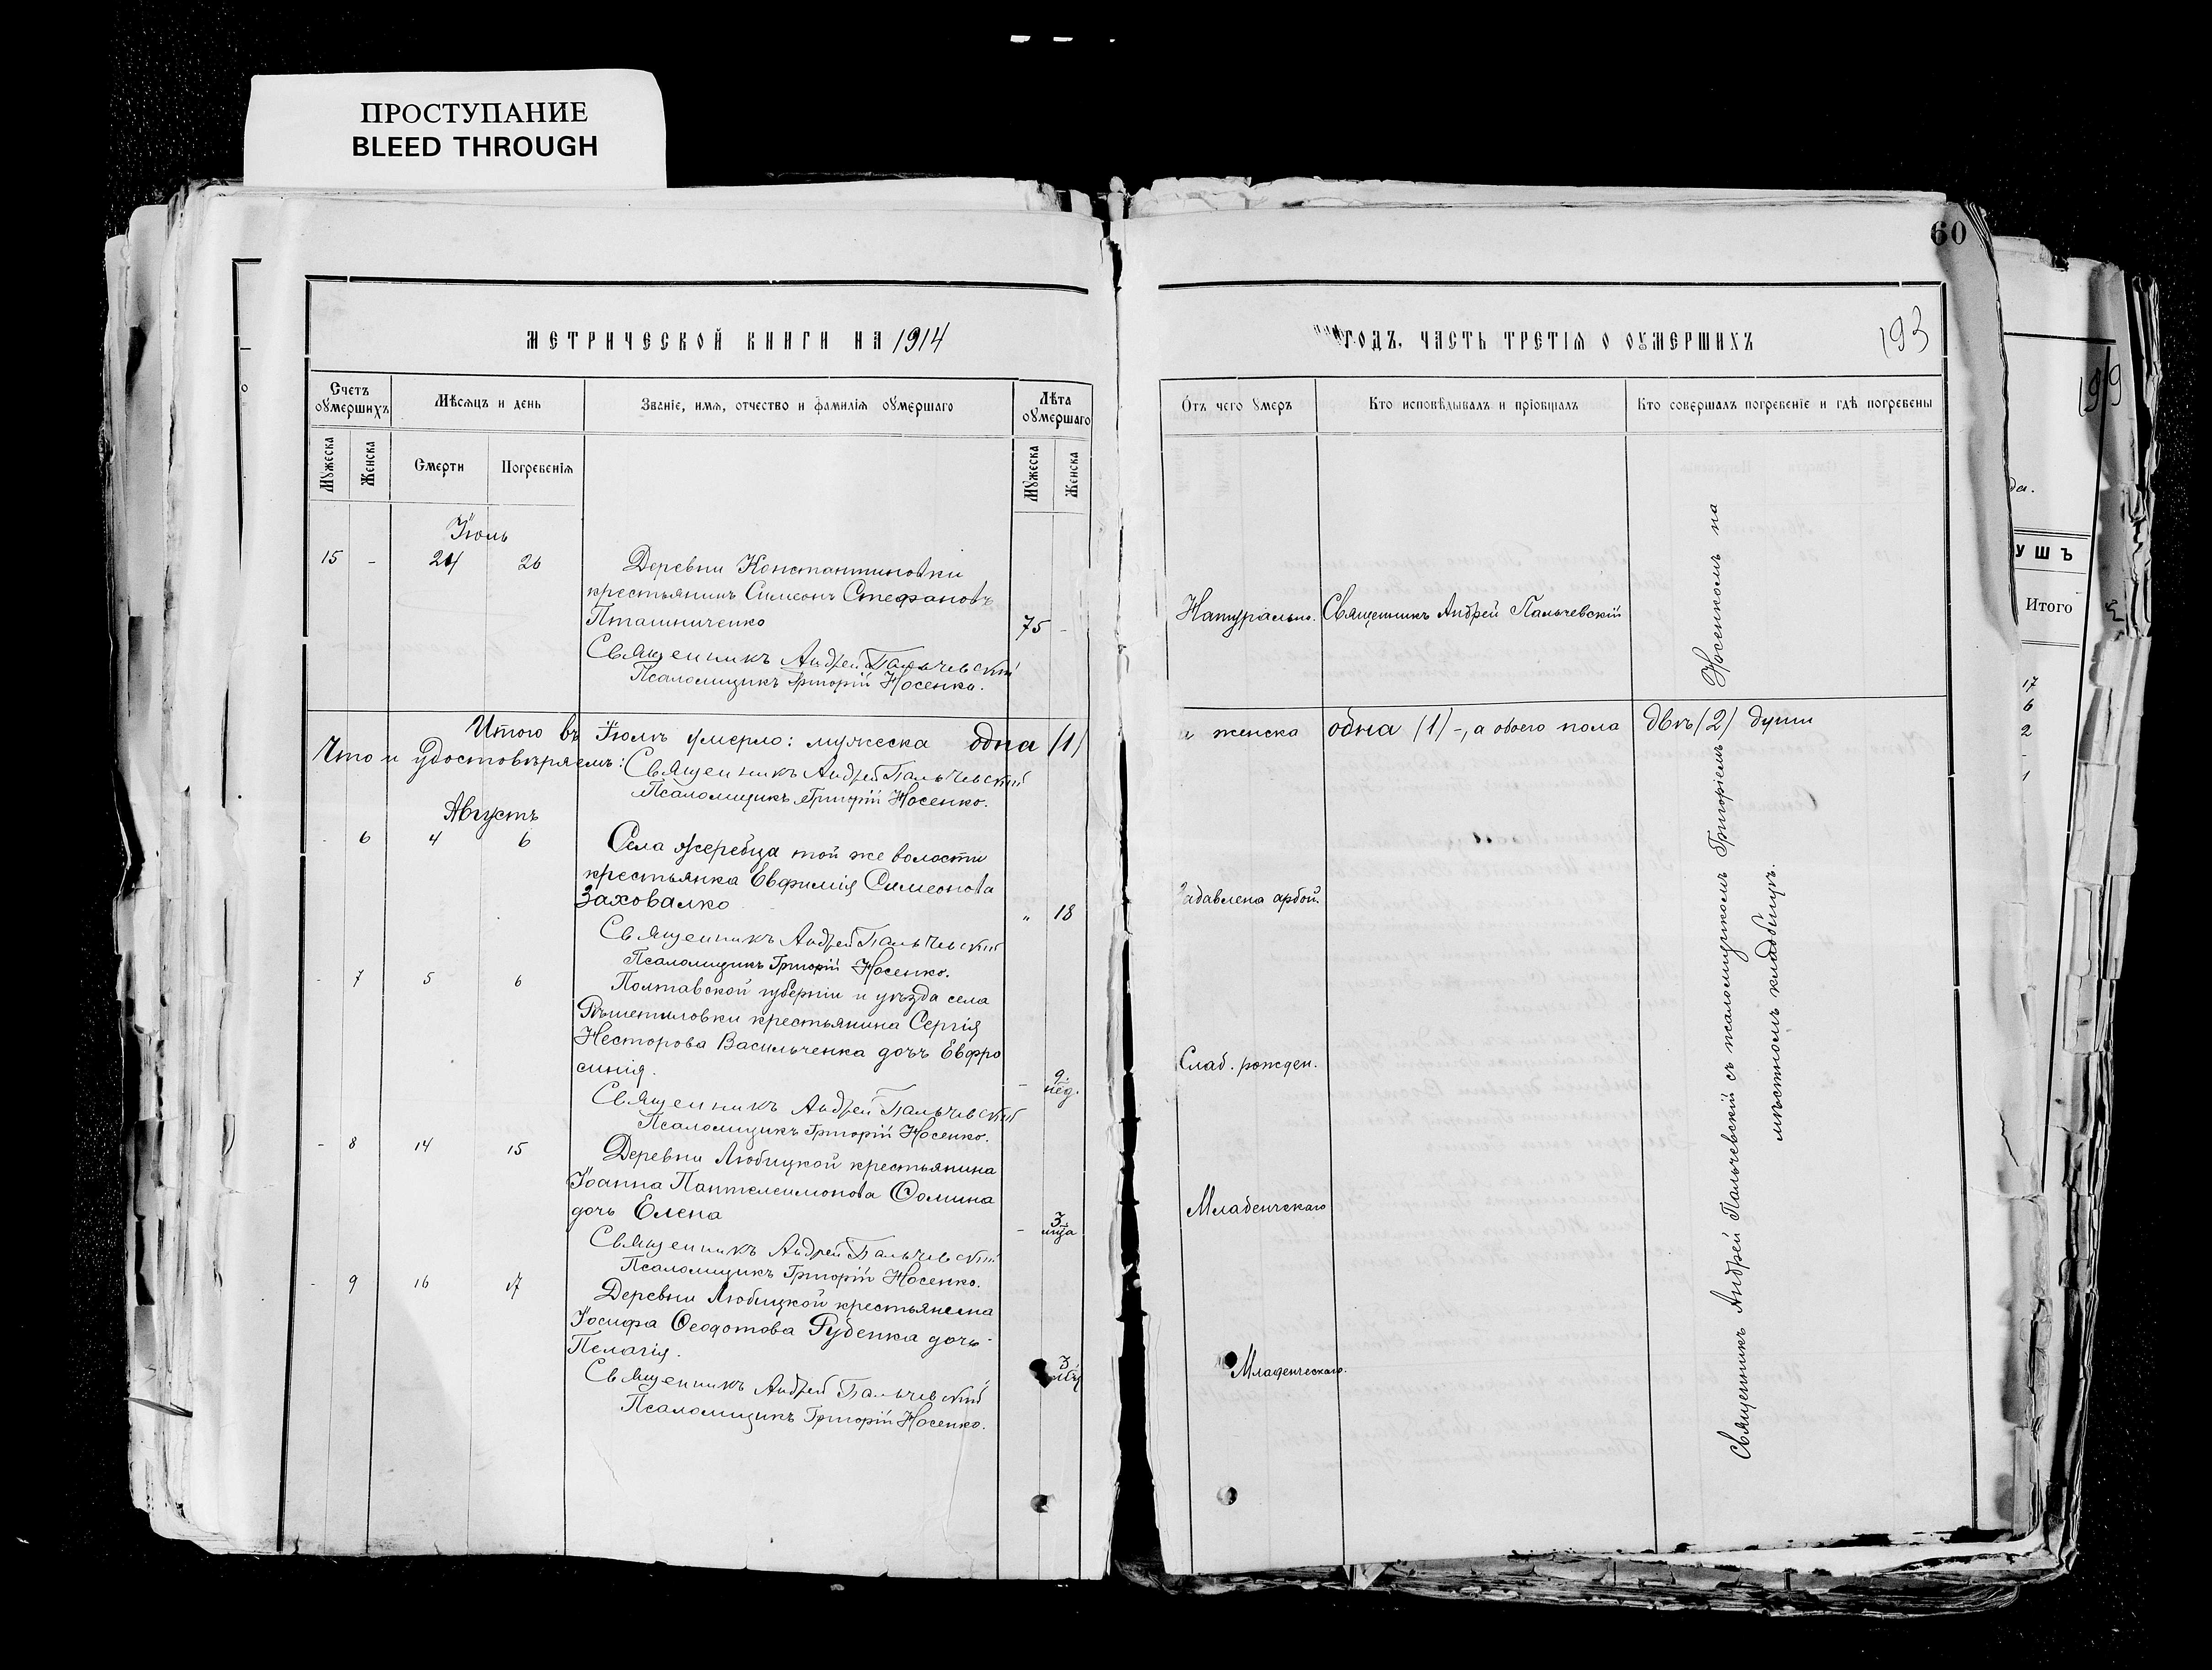 ПРОСТУПАНИЕ
BLEED THROUGH
60
МЕТРИЧЕСКОЙ КНИГИ НА 1914
ГОДЪ, ЧАСТЬ ТРЕТІѦ О ОУМЕРШИХЪ
193
199
Счетъ оумершихъ
Мѣсяцъ и день
Званіе, имя, отчество и фамилія оумершаго
Лѣта оумершаго
Отъ чего умеръ
Кто исповѣдывалъ и пріобщалъ
Кто совершалъ погребеніе и гдѣ погребены
Мужеска
Женска
Смерти
Погребенія
Мужеска
Женска
Іюль
15 - 24 26 Деревни Константиновки
крестьянинъ Симеонъ Стефановъ
Пташниченко 75 - Натурально. Священникъ Андрей Пальчевскій
Священникъ Андрей Пальчевскій
Псаломщикъ Григорій Носенко.
Итого въ Іюлѣ умерло: мужеска одна (1) и женска одна (1) -, а обоего пола двѣ (2) души
Что и удостовѣряемъ: Священникъ Андрей Пальчевскій
Псаломщикъ Григорій Носенко.
Августъ
- 6 4 6 Села Жеребца той же волости
крестьянка Евфимія Симеонова
Заховалко „ 18 Задавлена арбой.
Священникъ Андрей Пальчевскій
Псаломщикъ Григорій Носенко.
- 7 5 6 Полтавской губерніи и уѣзда села
Рѣшетиловки крестьянина Сергія
Несторова Васильченка дочь Евфро
синія. - 9 нед. Слаб. рожден.
Священникъ Андрей Пальчевскій
Псаломщикъ Григорій Носенко.
- 8 14 15 Деревни Любицкой крестьянина
Іоанна Пантелеимонова Ѳомина
дочь Елена - 3 мца Младенческаго
Священникъ Андрей Пальчевскій
Псаломщикъ Григорій Носенко.
- 9 16 17 Деревни Любицкой крестьянина
Іосифа Ѳеодотова Руденка дочь
Пелагія. 3 Младенческаго.
Священникъ Андрей Пальчевскій
Псаломщикъ Григорій Носенко.
Священникъ Андрей Пальчевскій съ псаломщикомъ Григоріемъ Носенкомъ на
мѣстномъ кладбищѣ.
да.
УШЪ
Итого
17
6
2
-
1